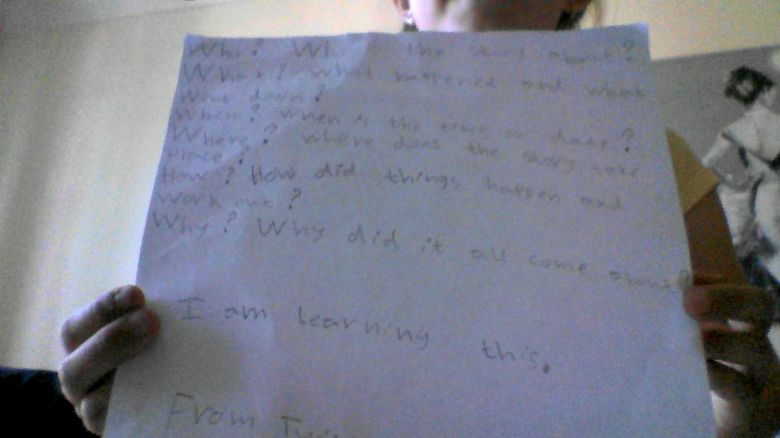 Who? Who is the story about?
What? What happened and what
went down?
When? when is the time or date?
Where? where does the story take
place?
How? How did things happen and
work out?
Why? Why did it all come about?
I am learning this.
From